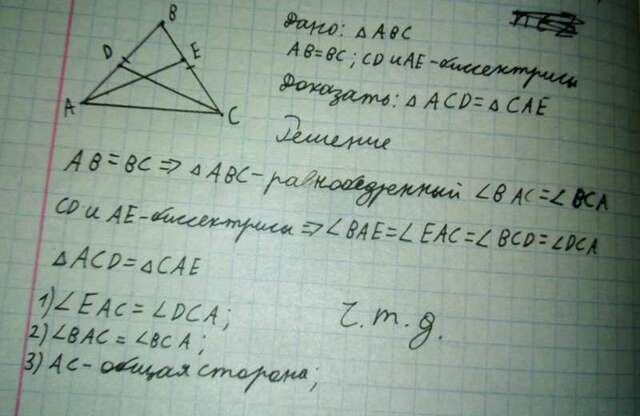 B
D
E
A
C
Дано: △ABC
AB=BC; CD и AE-биссектрисы
Доказать: △ACD=△CAE
Решение
AB=BC⇒△ABC-равнобедренный ∠BAC=∠BCA
CD и AE-биссектрисы⇒∠BAE=∠EAC=∠BCD=∠DCA
△ACD=△CAE
1)∠EAC=∠DCA;
2)∠BAC=∠BCA;
3)AC-общая сторона;
ч.т.д.